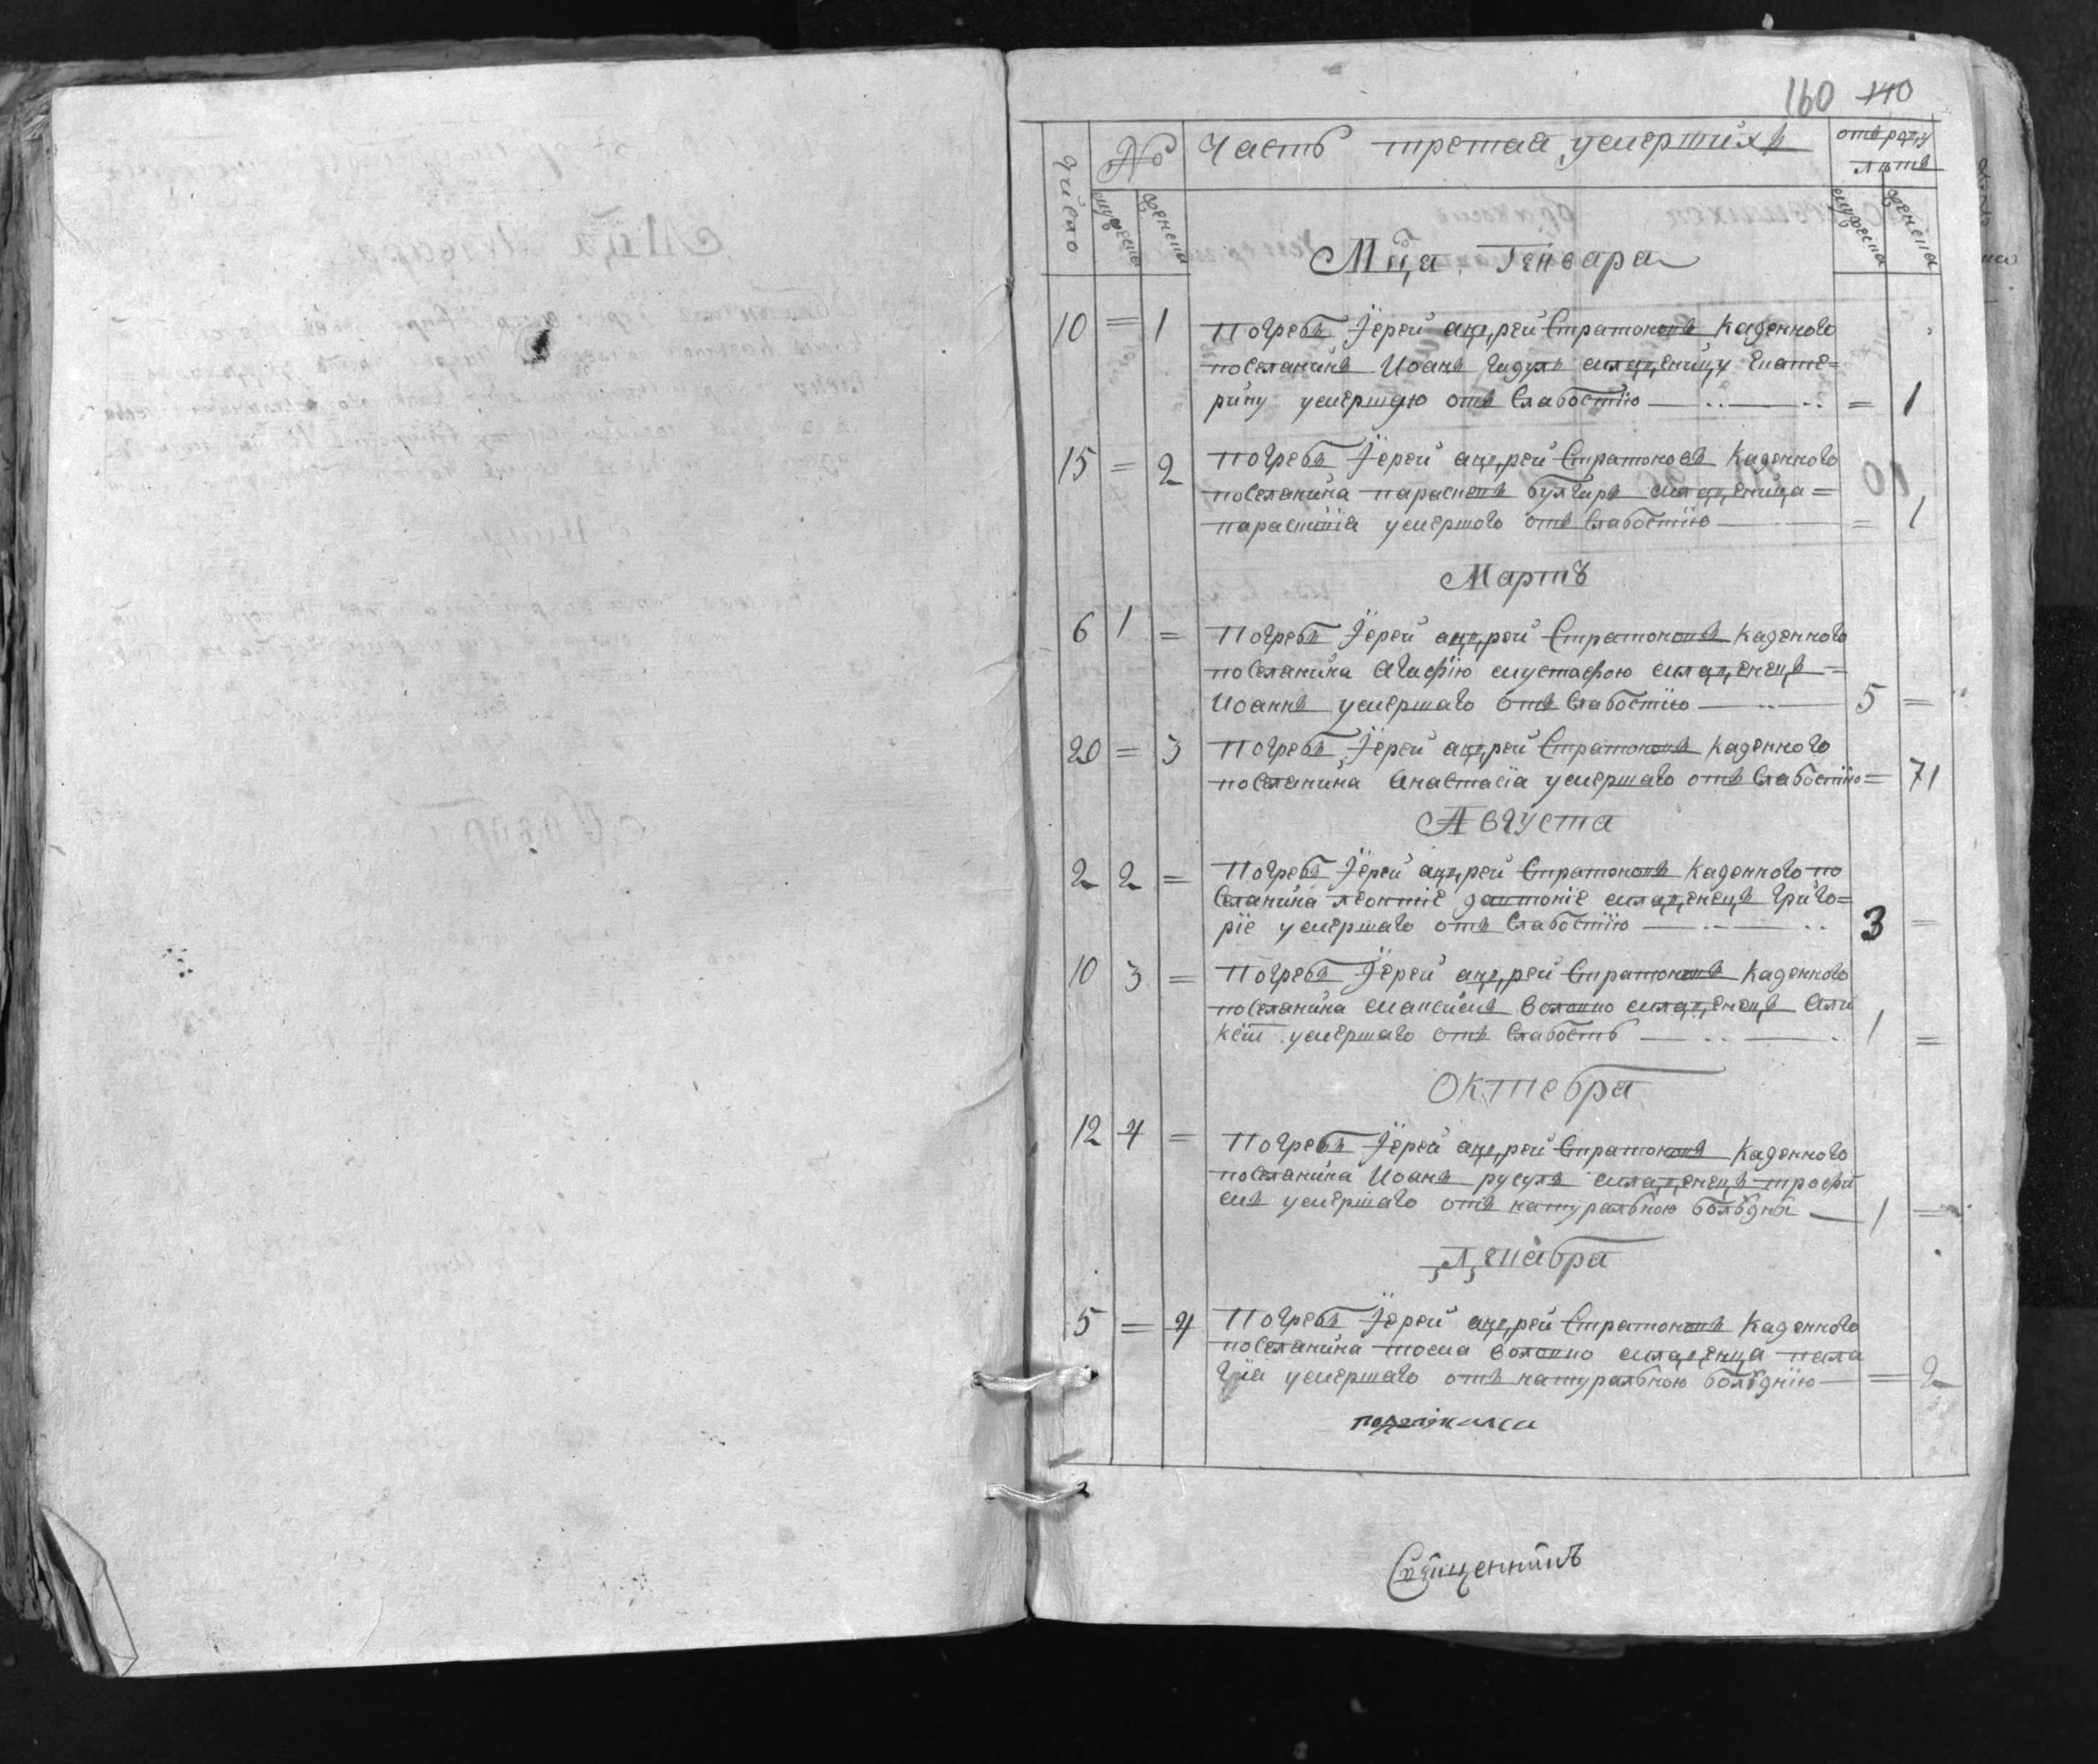 160 140
число
№
Часть третая умершихъ
отъ роду
лѣтъ
мужеска
женска
мужеска
женска
Мца Генваря
10 = 1 Погребъ Іерей андрей Стратоновъ Казенного
поселянинъ Иоанъ младеницу Екате=
рину умершую отъ Слабостїю — = 1
15 = 2 Погребъ Іерей андрей Стратоновъ Казенного
поселянина булгаръ младеница =
умершого отъ Слабостїю — = 1
Мартъ
6 1 = Погребъ Іерей андрей Стратоновъ Казенного
поселянина Агафїю мустафою младенецъ =
Иоаннъ умершаго отъ Слабостїю — 5 =
20 = 3 Погребъ Іерей андрей Стратоновъ Казенного
поселянина Анастасїа умершаго отъ Слабостїю = 71
Августа
2 2 = Погребъ Іерей андрей Стратоновъ Казенного по
селанина леонтіе младенецъ Григо=
рїе умершаго отъ Слабостїю — 3 =
10 3 = Погребъ Іерей андрей Стратоновъ Казенного
поселянина максимъ младенецъ
умершаго отъ Слабость — 1 =
Октебра
12 4 = Погребъ Іерей андрей Стратоновъ Казенного
поселянина Иоанъ русулъ младенецъ трофи
мъ умершаго отъ натуральною болѣзны — 1 =
Декабра
5 = 4 Погребъ Іерей андрей Стратоновъ Казенного
поселянина тома младенца пела
гїа умершаго отъ натуральною болѣзнїю — = 2